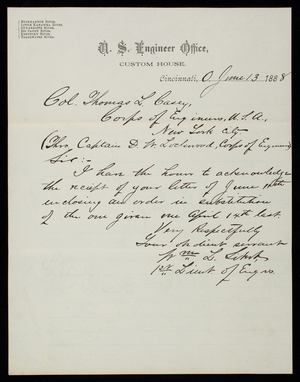 U. S. Engineer Office,
CUSTOM HOUSE.
Cincinnati, O June 13 1888
Col. Thomas L. Casey,
Corps of Engineers, U.S.A.
New York City
(Thro. Captain D. W. Lockwood, Corps of Engineers)
Sir:-
I have the honor to acknowledge
the receipt of your letter of June
enclosing an order in substitution
of the one given me April 14th last.
Very Respectfully
Your obedient servant
Wm L. Sibert
1st Lieut of Engrs